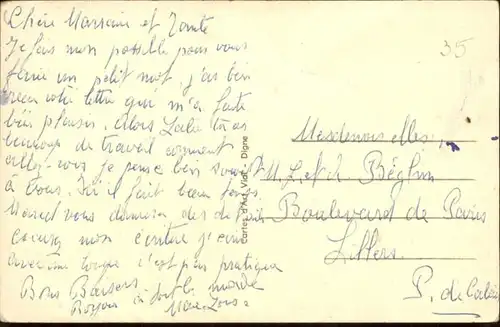 Chère Marraine et Tante
Je fais mon possible pour vous
faire un petit mot, j'ai bien
recu votre lettre qui m'a fait
bien plaisir. Alors Lalie tu as
beaucoup de travail comment
allez-vous je pense bien souvent
à tous. Ici il fait beau temps
Marcel vous demande des
mon écriture j'écris
avec une c'est pas pratique
Bons Baisers
Bonjour à tout le monde
35
Cartes d'Art Vial - Digne
Mesdemoiselles,
M. L. et J. Béghin
Boulevard de Paris
Lillers
P. de Calais